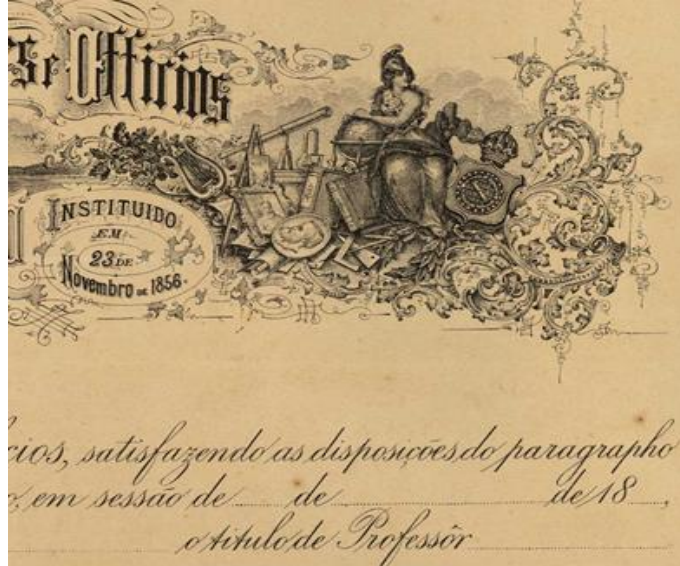 es e Officios
INSTITUIDO
EM
23 DE
Novembro DE 1856.
cios, satisfazendo as disposições do paragrapho
o, em sessão de de de 18 ,
o titulo de Professôr